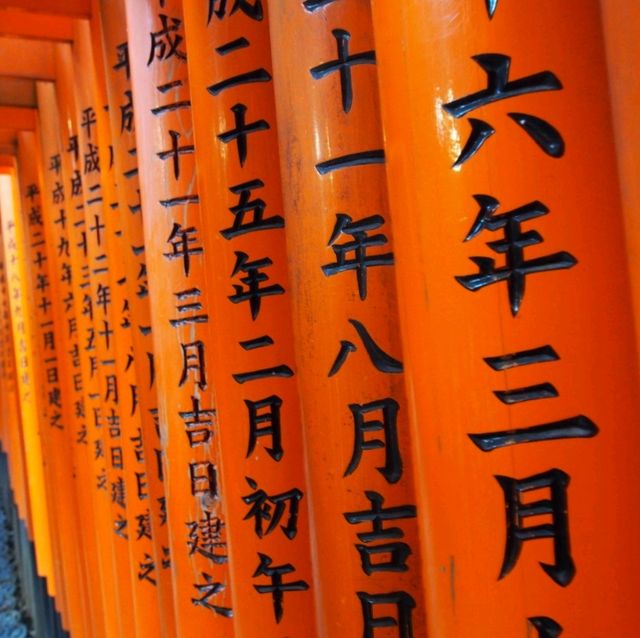 六年三月
十一年八月吉日
成二十五年二月初午
成二十一年三月吉日建之
平成二十二年十一月吉日建之
平成二十三年五月一日建之
平成十九年六月吉日建之
平成二十年十一月一日建之
平成十八年九月吉日建之